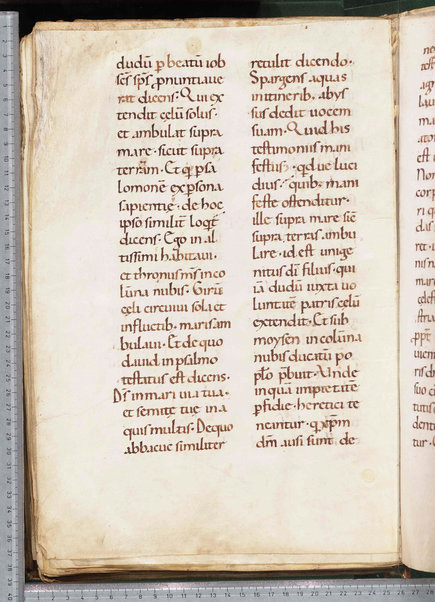 dudū ꝑ beatū iob
sēs sp̄s ꝓnuntiave
rat dicens· Qui ex
tendit cęlū solus·
et ambulat supra
mare· sicut supra
terrām· Et qđ ꝑ sa
lomonē ex ꝑsona
sapientię· de hoc
ipso similit̄ loqt̄
dicens· Ego in al
tissimi habitavi·
et thronus m̄s in co
lūna nubis· Girū
cęli circuivi sola et
in fluctib· maris am
bulavi· Et de quo
david in psalmo
testatus est dicens·
D̄s in mari via tua·
et semitę tuę in a
quis multis· De quo
abbacuc similiter
retulit dicendo·
Spargens aquas
in itinerib· abys
sus dedit vocem
suam· Quid his
testimoniis mani
festius· qđ ve luci
dius· quib· mani
feste ostenditur·
ille supra mare sic̄
supra terras ambu
lare· id est unige
nitus d̄i filius· qui
iā dudū iuxta vo
luntatē patris cęlū
extendit· Et sub
moysen in colūna
nubis ducatū po
pło p̄buit· Unde
in quā impietatē
ꝑfidię· heretici te
neantur· q xp̄m
dm̄ ausi sunt de